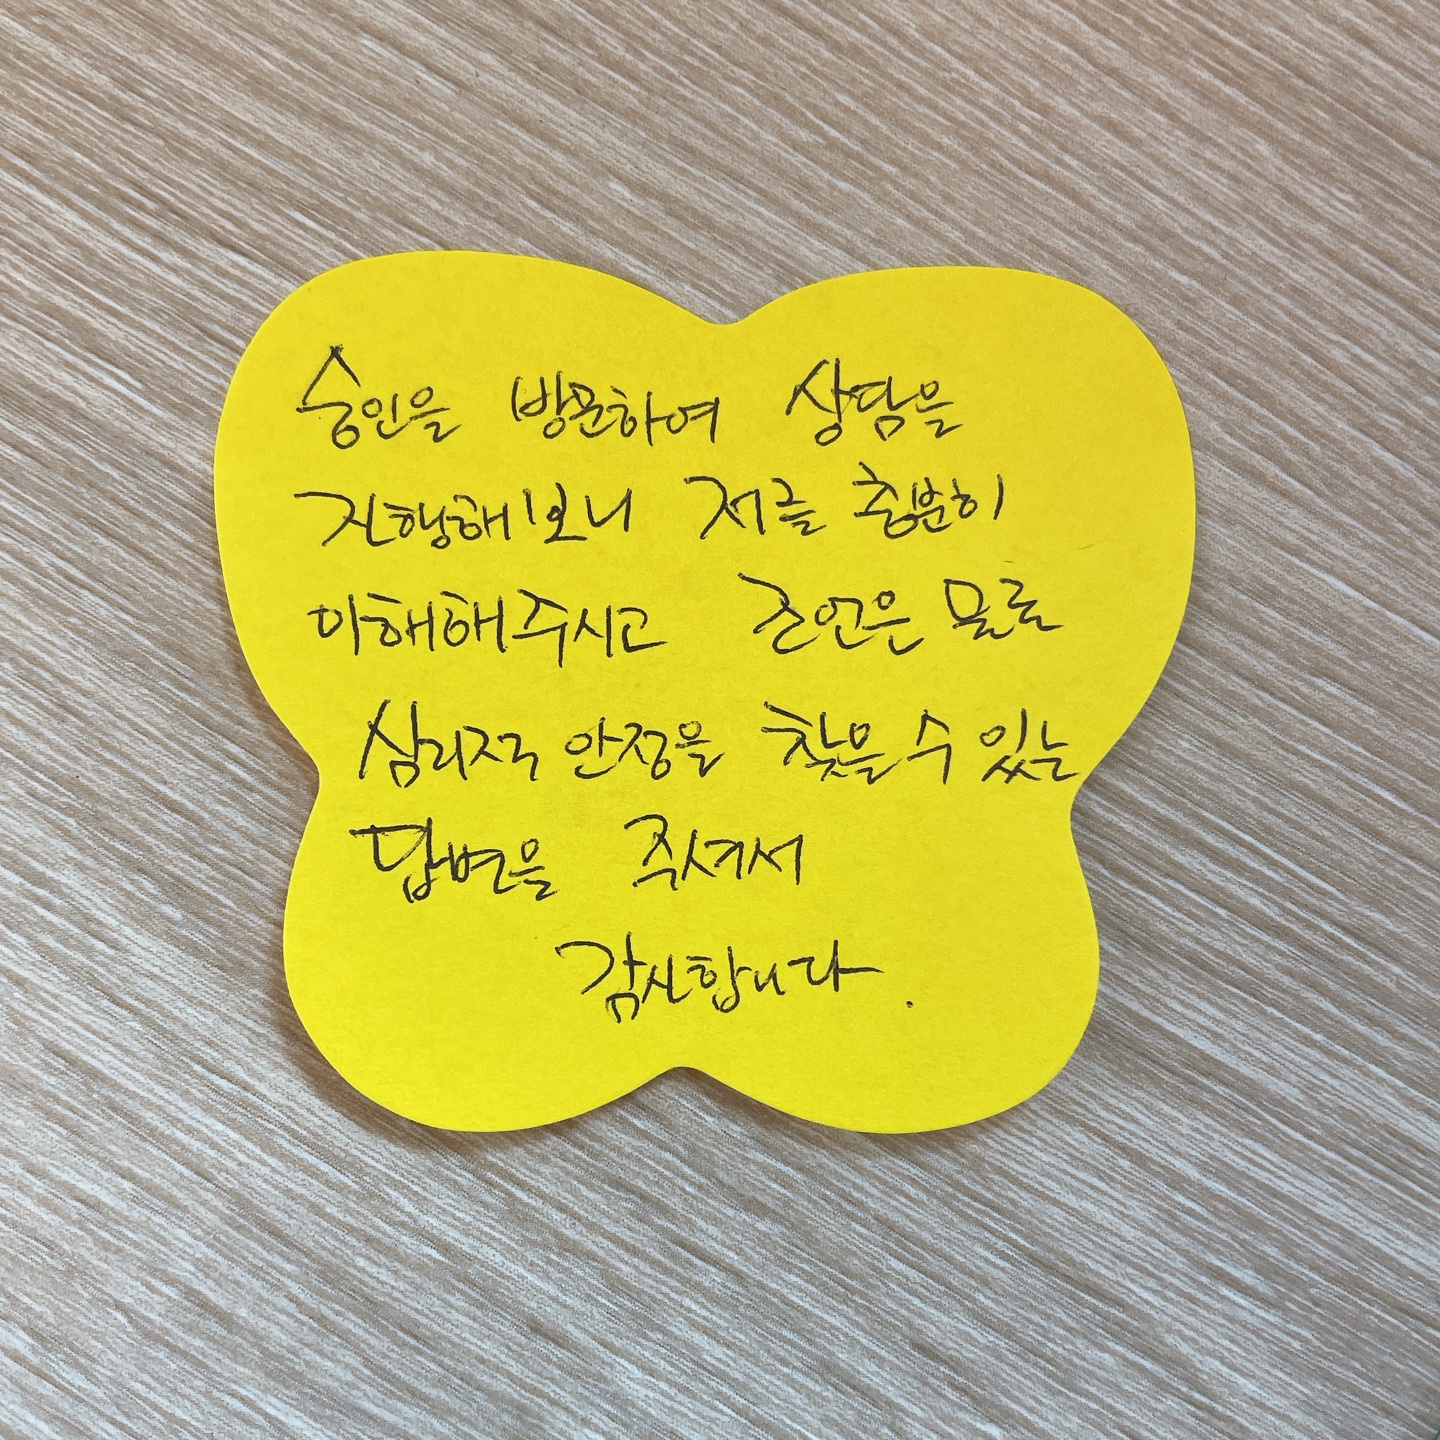 승인을 방문하여 상담을
진행해보니 저를 충분히
이해해주시고 조언은 물론
심리적 안정을 찾을 수 있는
답변을 주셔서
감사합니다.